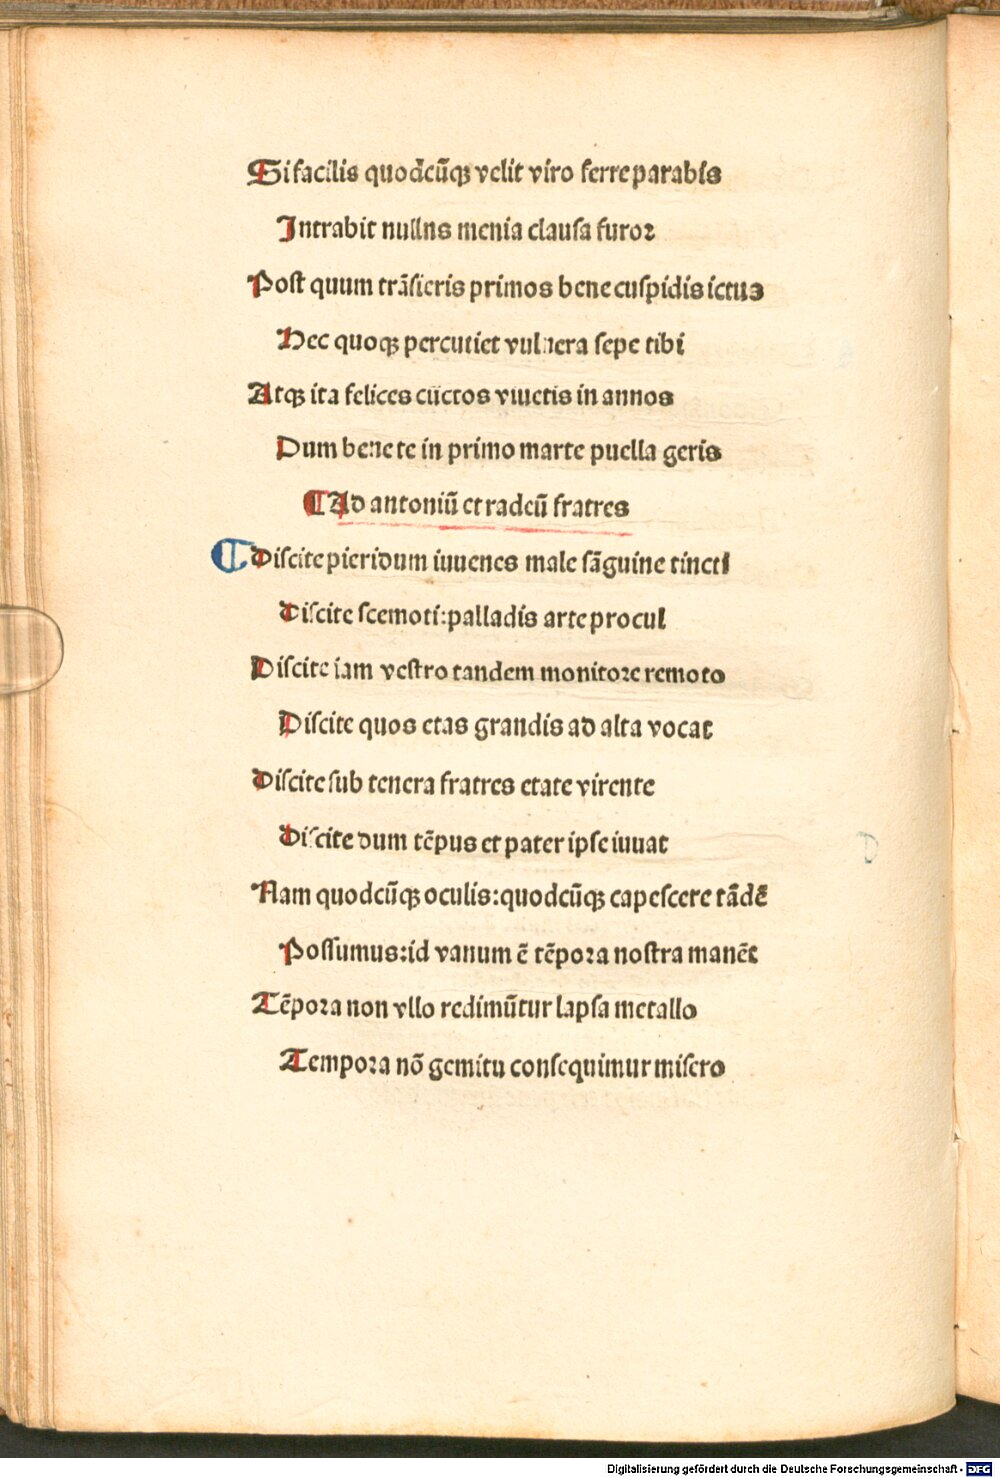 Si facilis quodcūqꝫ velit viro ferre parabis
Intrabit nullns menia clausa furor
Post quum trāsieris primos bene cuspidis ictus
Hec quoqꝫ percutiet vulnera sepe tibi
Atqꝫ ita felices cūctos viuetis in annos
Dum bene te in primo marte puella geris
Ad antoniū et radcū fratres
Discite pieridum iuuenes male sāguine tincti
Discite scemoti: palladis arte procul
Discite iam vestro tandem monitore remoto
Discite quos etas grandis ad alta vocat
Discite sub tenera fratres etate virente
Discite dum tēpus et pater ipse iuuat
Nam quodcūqꝫ oculis: quodcūqꝫ capescere tādē
Possumus: id vanum ē tēpora nostra manēt
Tēpora non vllo redimūtur lapsa metallo
Tempora nō gemitu consequimur misero
Digitalisierung gefördert durch die Deutsche Forschungsgemeinschaft - DFG